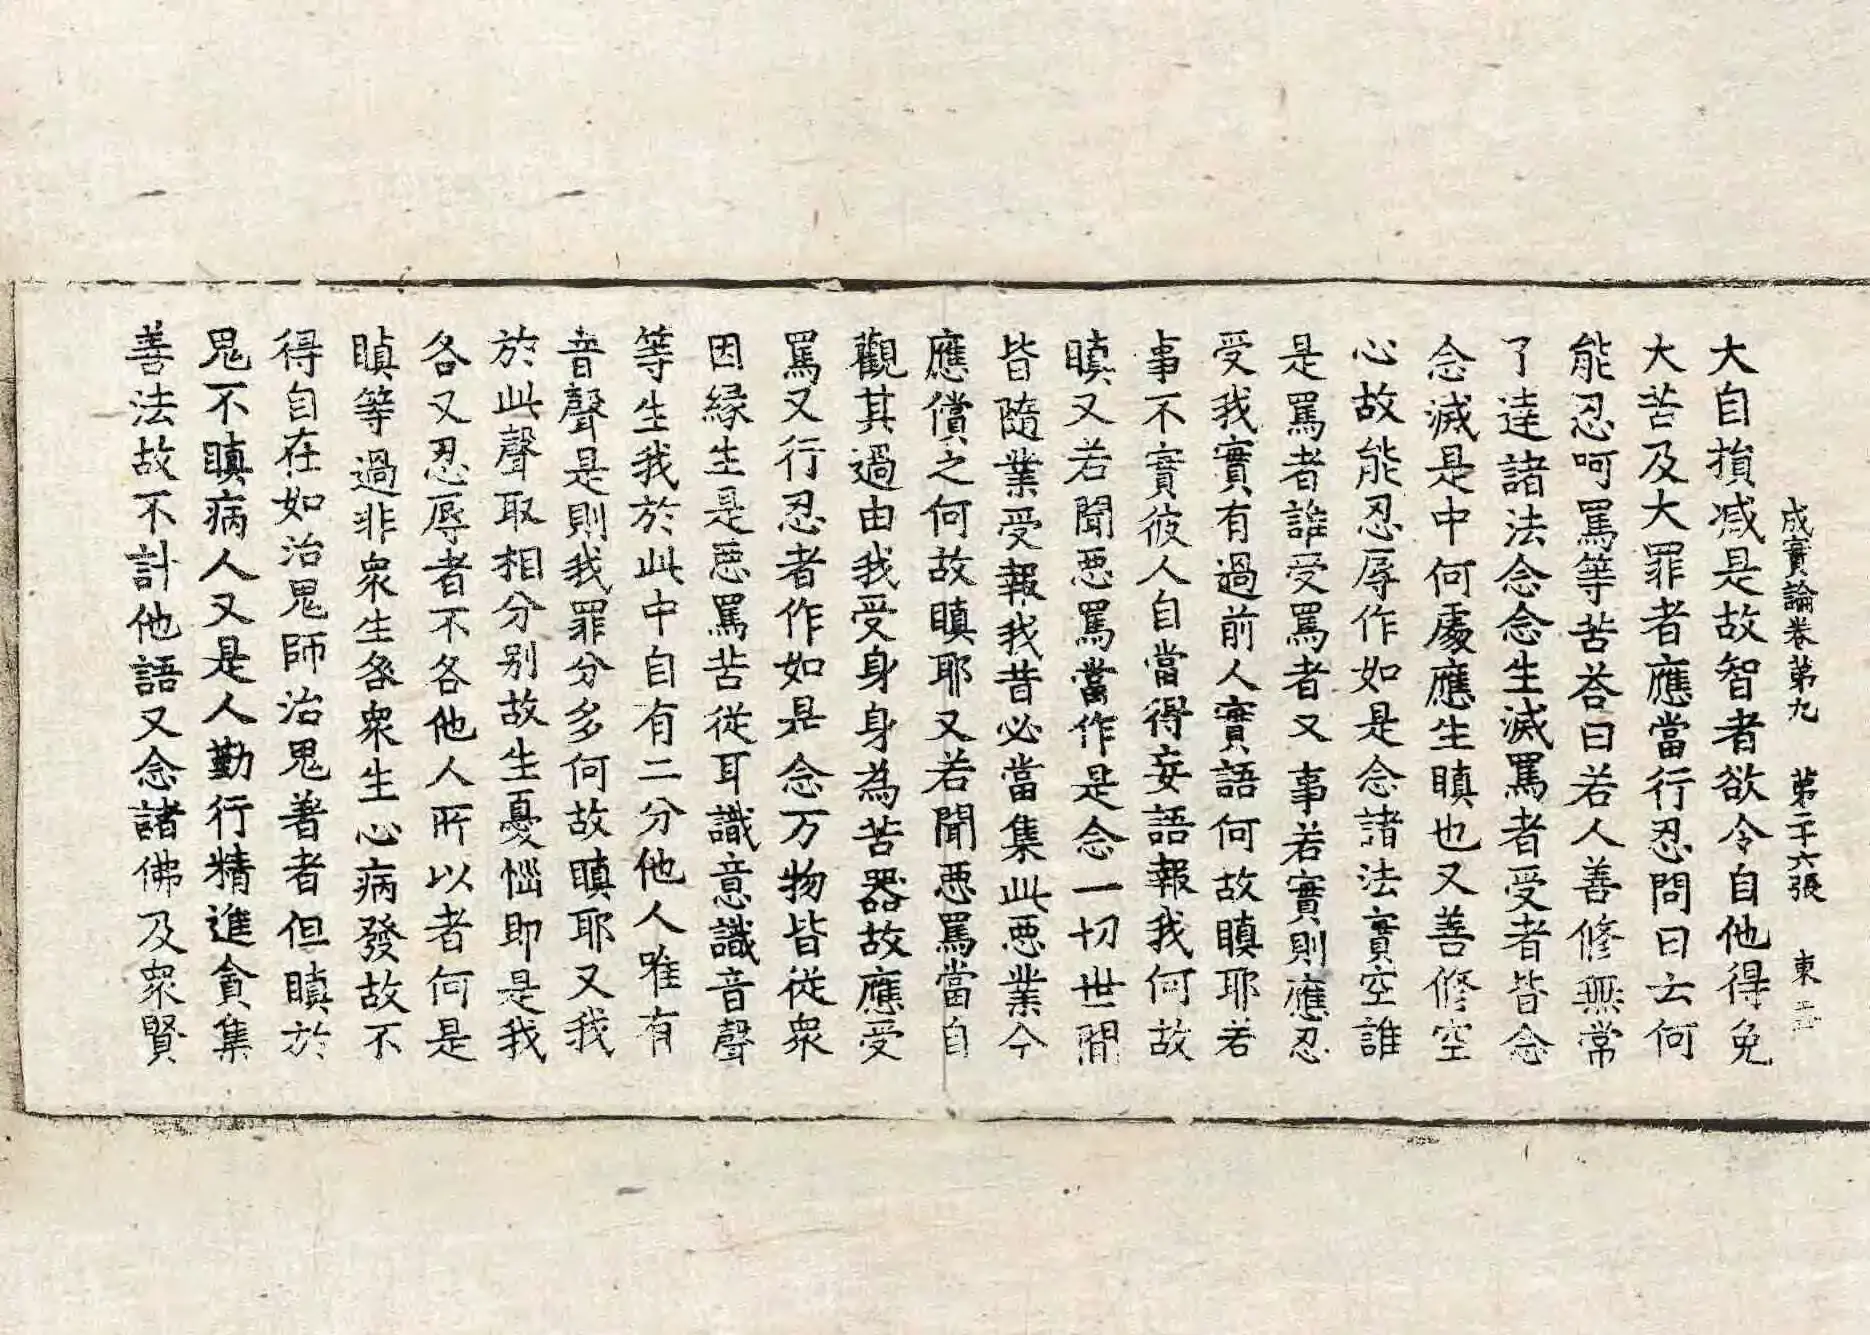 成實論卷第九 第二十六張 東
大自損减是故智者欲令自他得免
大苦及大罪者應當行忍問曰云何
能忍呵罵等苦荅曰若人善修無常
了達諸法念念生滅罵者受者皆念
念滅是中何處應生瞋也又善修空
心故能忍辱作如是念諸法實空誰
是罵者誰受罵者又事若實則應忍
受我實有過前人實語何故瞋耶若
事不實彼人自當得妄語報我何故
瞋又若聞惡罵當作是念一切世間
皆隨業受報我昔必當集此惡業今
應償之何故瞋耶又若聞惡罵當自
觀其過由我受身身為苦器故應受
罵又行忍者作如是念万物皆從衆
因緣生是惡罵苦從耳識意識音聲
等生我於此中自有二分他人唯有
音聲是則我罪分多何故瞋耶又我
於此聲取相分别故生憂惱即是我
咎又忍辱者不咎他人所以者何是
瞋等過非衆生咎衆生心病發故不
得自在如治鬼師治鬼著者但瞋於
鬼不瞋病人又是人勤行精進貪集
善法故不計他語又念諸佛及衆賢